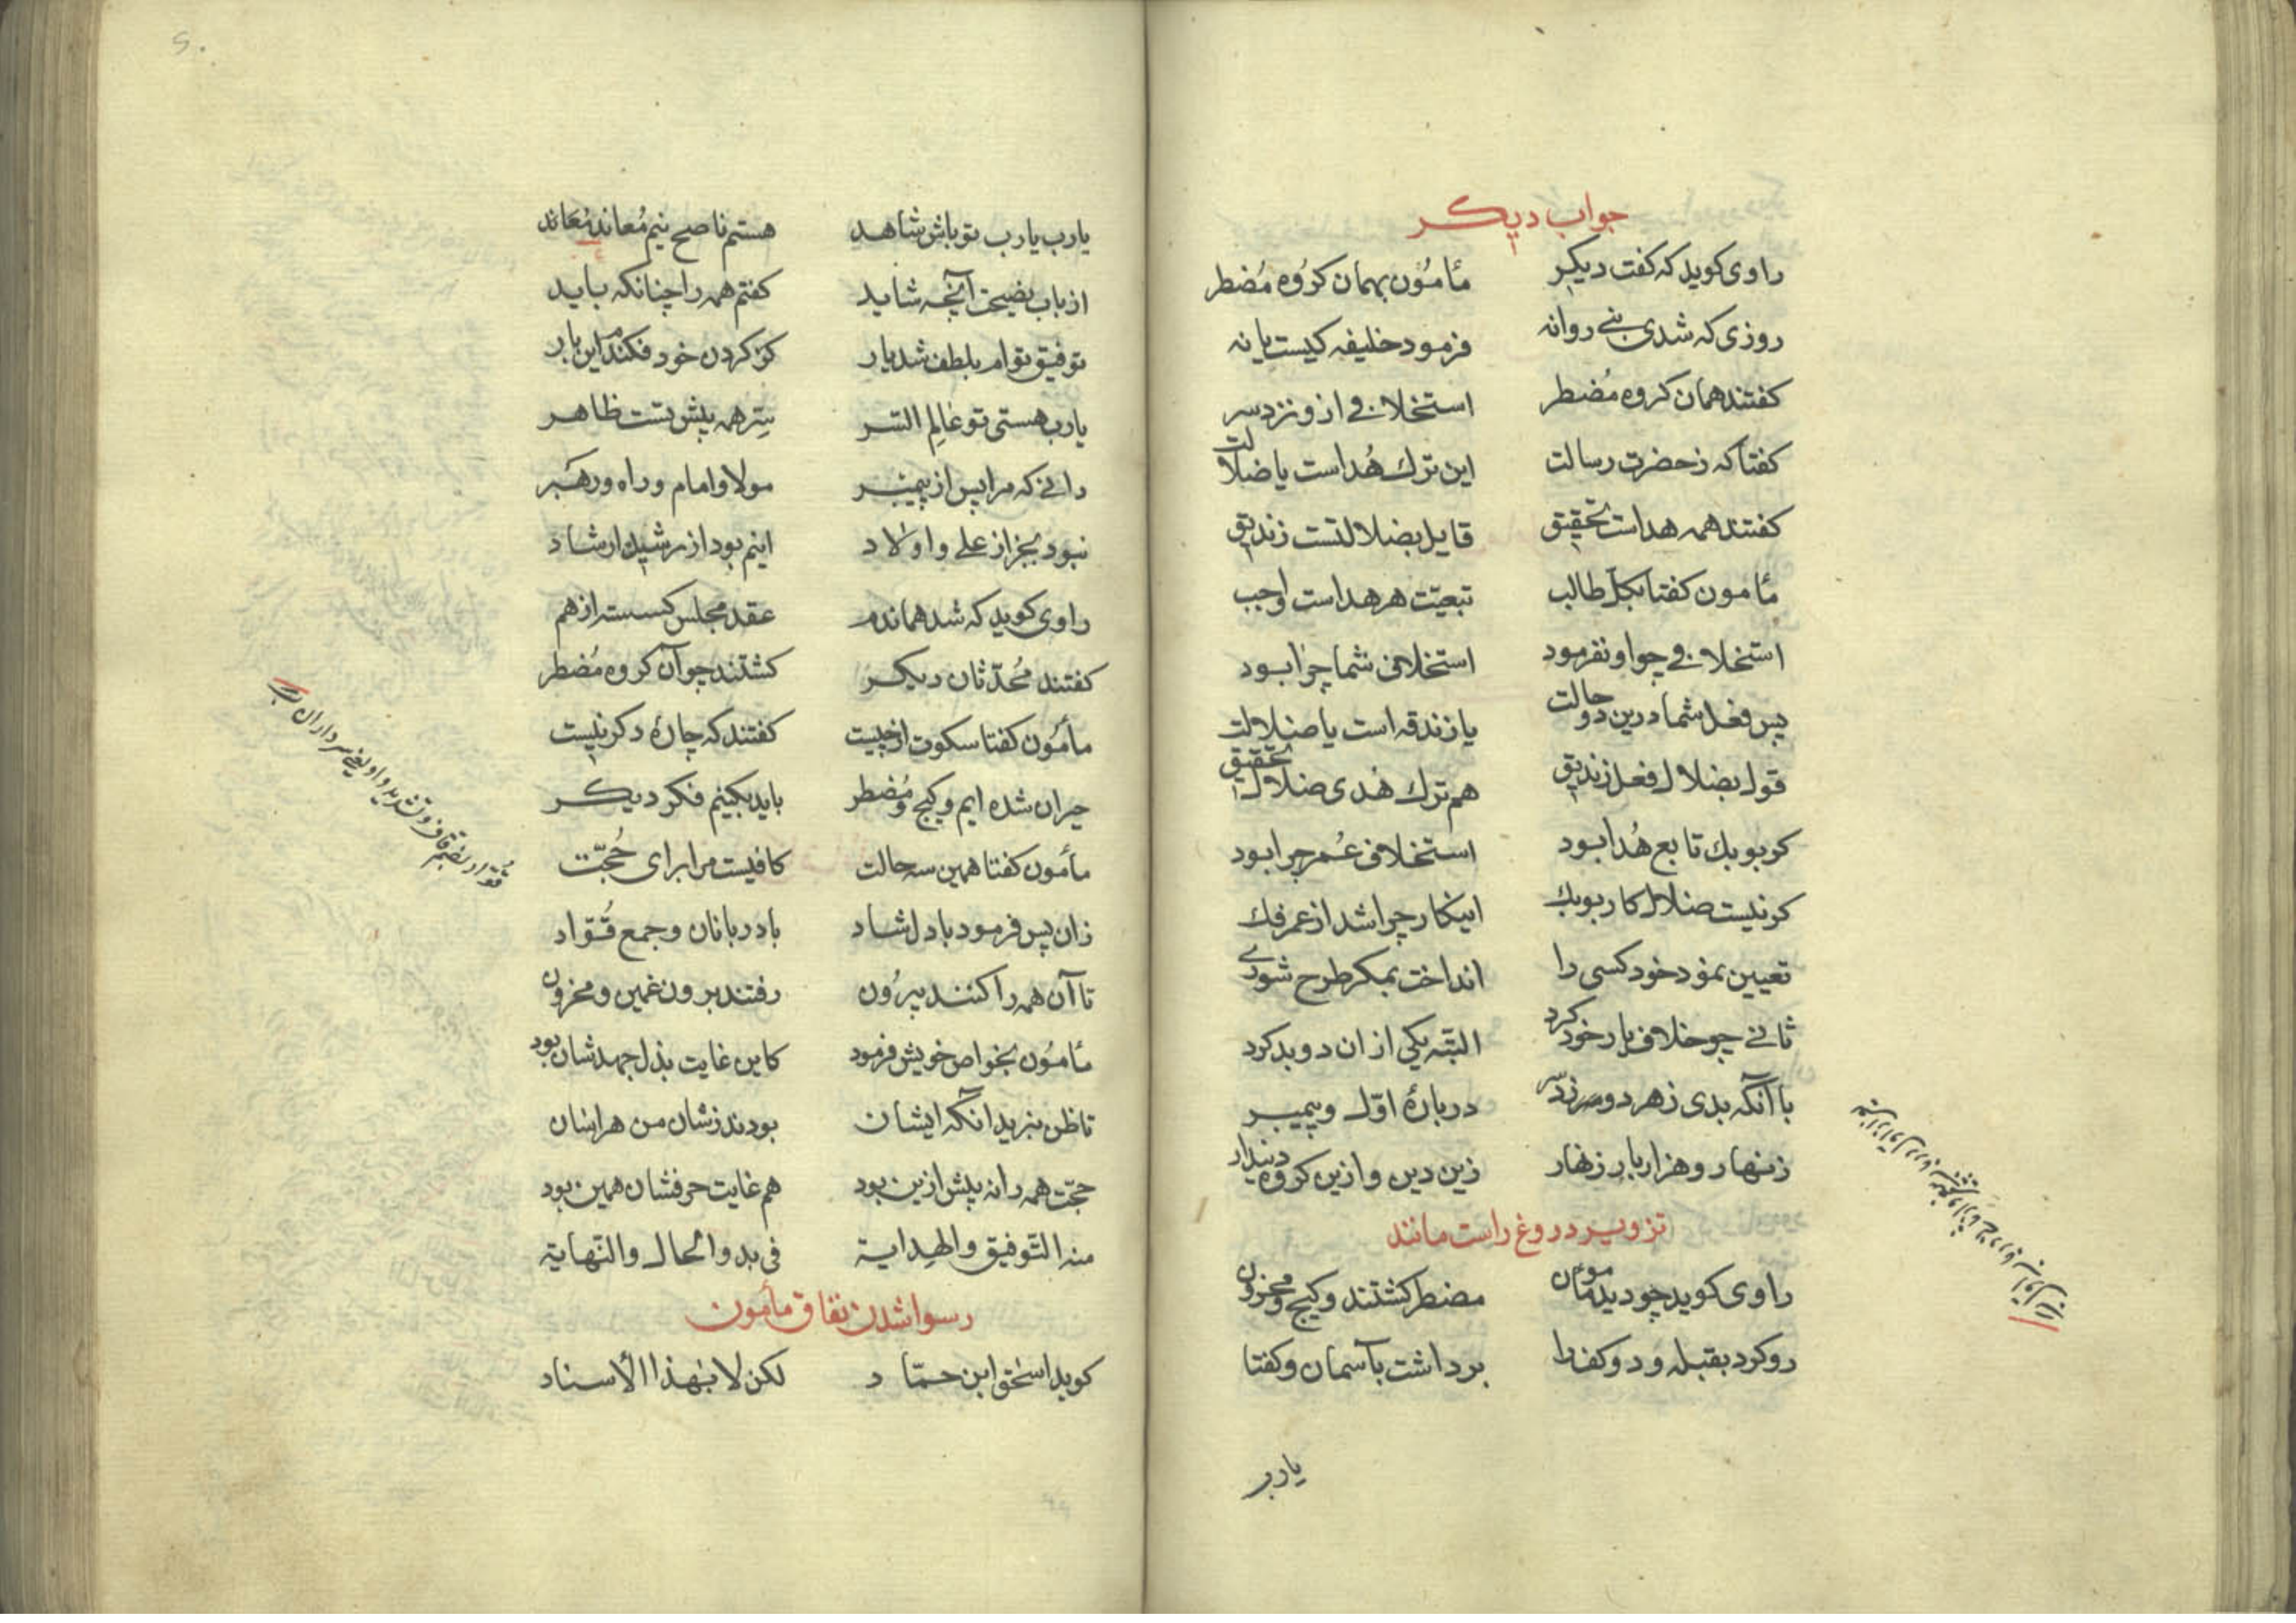 جواب دیکر
راوی کوید که کفت دیکر مأمُون بهمان کرُوه مُضطر
روزی که شدی بنی روانه فرمود خلیفه کیست یا نه
کفتند همان کروه مُضطر استخلافی ازو نزد سر
کفتا که ز حضرت رسالت این ترك هُداست یا ضلالت
کفتند همه هداست تحقیق قایل بضلالتست زندیق
مأمون کفتا بکل طالب تبعیّت هر هداست واجب
استخلافی چو او نفرمود استخلافی شما چرا بود
پس فعل شما درین دو حالت یا زندقه است یا ضلالت
قول بضلال فعل زندیق هم ترك هُدی ضلالت تحقیق
کر بوبك تابع هُدا بود استخلاف عُمر چرا بود
کر نیست ضلال کار بوبك اینکار چرا شد از عمر فك
تعیین نمود خود کسی را انداخت بمکر طرح شوری
ثانی چو خلاف یار خود کرد البتّه یکی از ان دو بد کرد
با آنکه بدی ز هر دو سرزد در بارهٔ اوّل و پیمبر
زنهار و هزار بار زنهار زین دین و ازین کروه دیندار
تزویر دروغ راست مانند
راوی کوید چو دید مأمون مضطر کشتند و کیج و محزون
رو کرد بقبله و دو کف را برداشت بآسمان و کفتا
یارب
یارب یارب تو باش شاهد هستم ناصح نیم مُعاند مُعَاند
از باب نصیحت آنچه شاید کفتم همه را چنانکه باید
توفیق توام بلطف شد یار کز کردن خود فکندم این بار
یارب هستی تو عالِم السّر سِرّ همه پیش تست ظاهر
دانی که مرا پس از پیمبر مولا و امام و راه و رهبر
نبود بجز از علی و اولاد اینم بود از رشید ارشاد
راوی کوید که شد هماندم عقد مجلس کسسته از هم
کفتند مُحدّثان دیکر کشتند چو آن کروه مُضطر
مأمُون کفتا سکوت از چیست کفتند که چارهٔ دکر نیست
حیران شده ایم و کیج و مُضطر باید بکنیم فکر دیکر
مأمون کفتا همین سه حالت کافیست مرا برای حُجّت
زان پس فرمود با دل شاد با دربانان و جمع قُوّاد
تا آن همه را کنند بیرُون رفتند برون غمین و محزون
مأمُون بخواص خویش فرمود کاین غایت بذل جهد شان بود
تا ظن نبرید انکه ایشان بودند ز شان من هراسان
حجّت همه را نه پیش ازین بود هم غایت حرفشان همین بود
منه التّوفیق والهِدایة فی بدو الحال والنّهایة
رسوا شدن نفاق مأمون
کوید اسحٰق ابن حمّاد لکن لا بهٰذا الأسناد
قُوّاد بضم قاف و تشدید واو یعنی سرداران